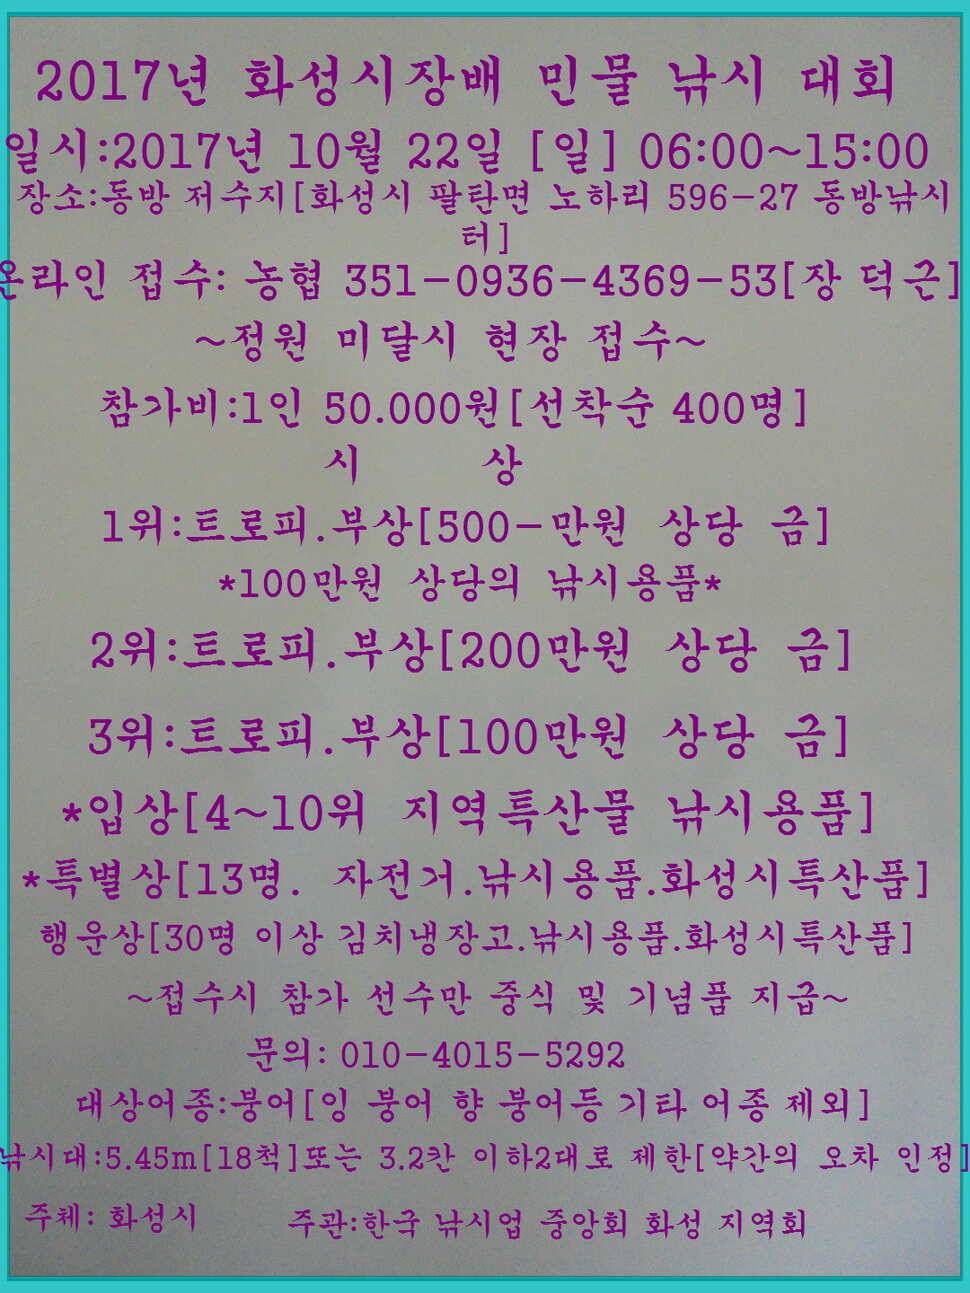 2017년 화성시장배 민물 낚시 대회
일시:2017년 10월 22일 [일] 06:00~15:00
장소:동방 저수지[화성시 팔탄면 노하리 596-27 동방낚시
터]
온라인 접수: 농협 351-0936-4369-53[장 덕근]
~정원 미달시 현장 접수~
참가비:1인 50.000원[선착순 400명]
시 상
1위:트로피.부상[500-만원 상당 금]
*100만원 상당의 낚시용품*
2위:트로피.부상[200만원 상당 금]
3위:트로피.부상[100만원 상당 금]
*입상[4~10위 지역특산물 낚시용품]
*특별상[13명. 자전거.낚시용품.화성시특산품]
행운상[30명 이상 김치냉장고.낚시용품.화성시특산품]
~접수시 참가 선수만 중식 및 기념품 지급~
문의: 010-4015-5292
대상어종:붕어[잉 붕어 향 붕어등 기타 어종 제외]
낚시대:5.45m[18척]또는 3.2칸 이하2대로 제한[약간의 오차 인정]
주체: 화성시 주관:한국 낚시업 중앙회 화성 지역회